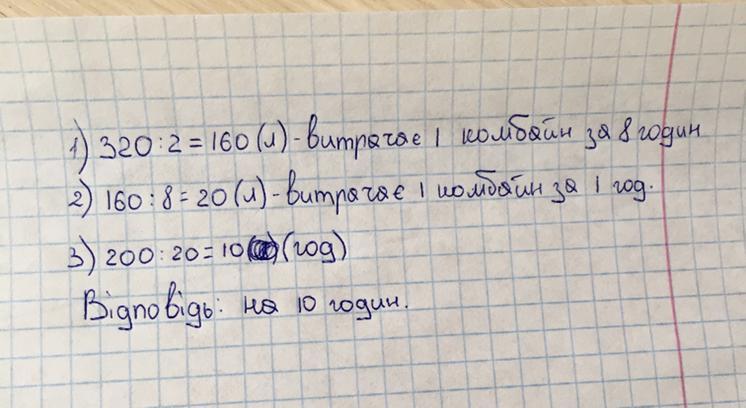 1) 320 : 2 = 160 (л) - витрачає 1 комбайн за 8 годин
2) 160 : 8 = 20 (л) - витрачає 1 комбайн за 1 год.
3) 200 : 20 = 10 (год)
Відповідь: на 10 годин.